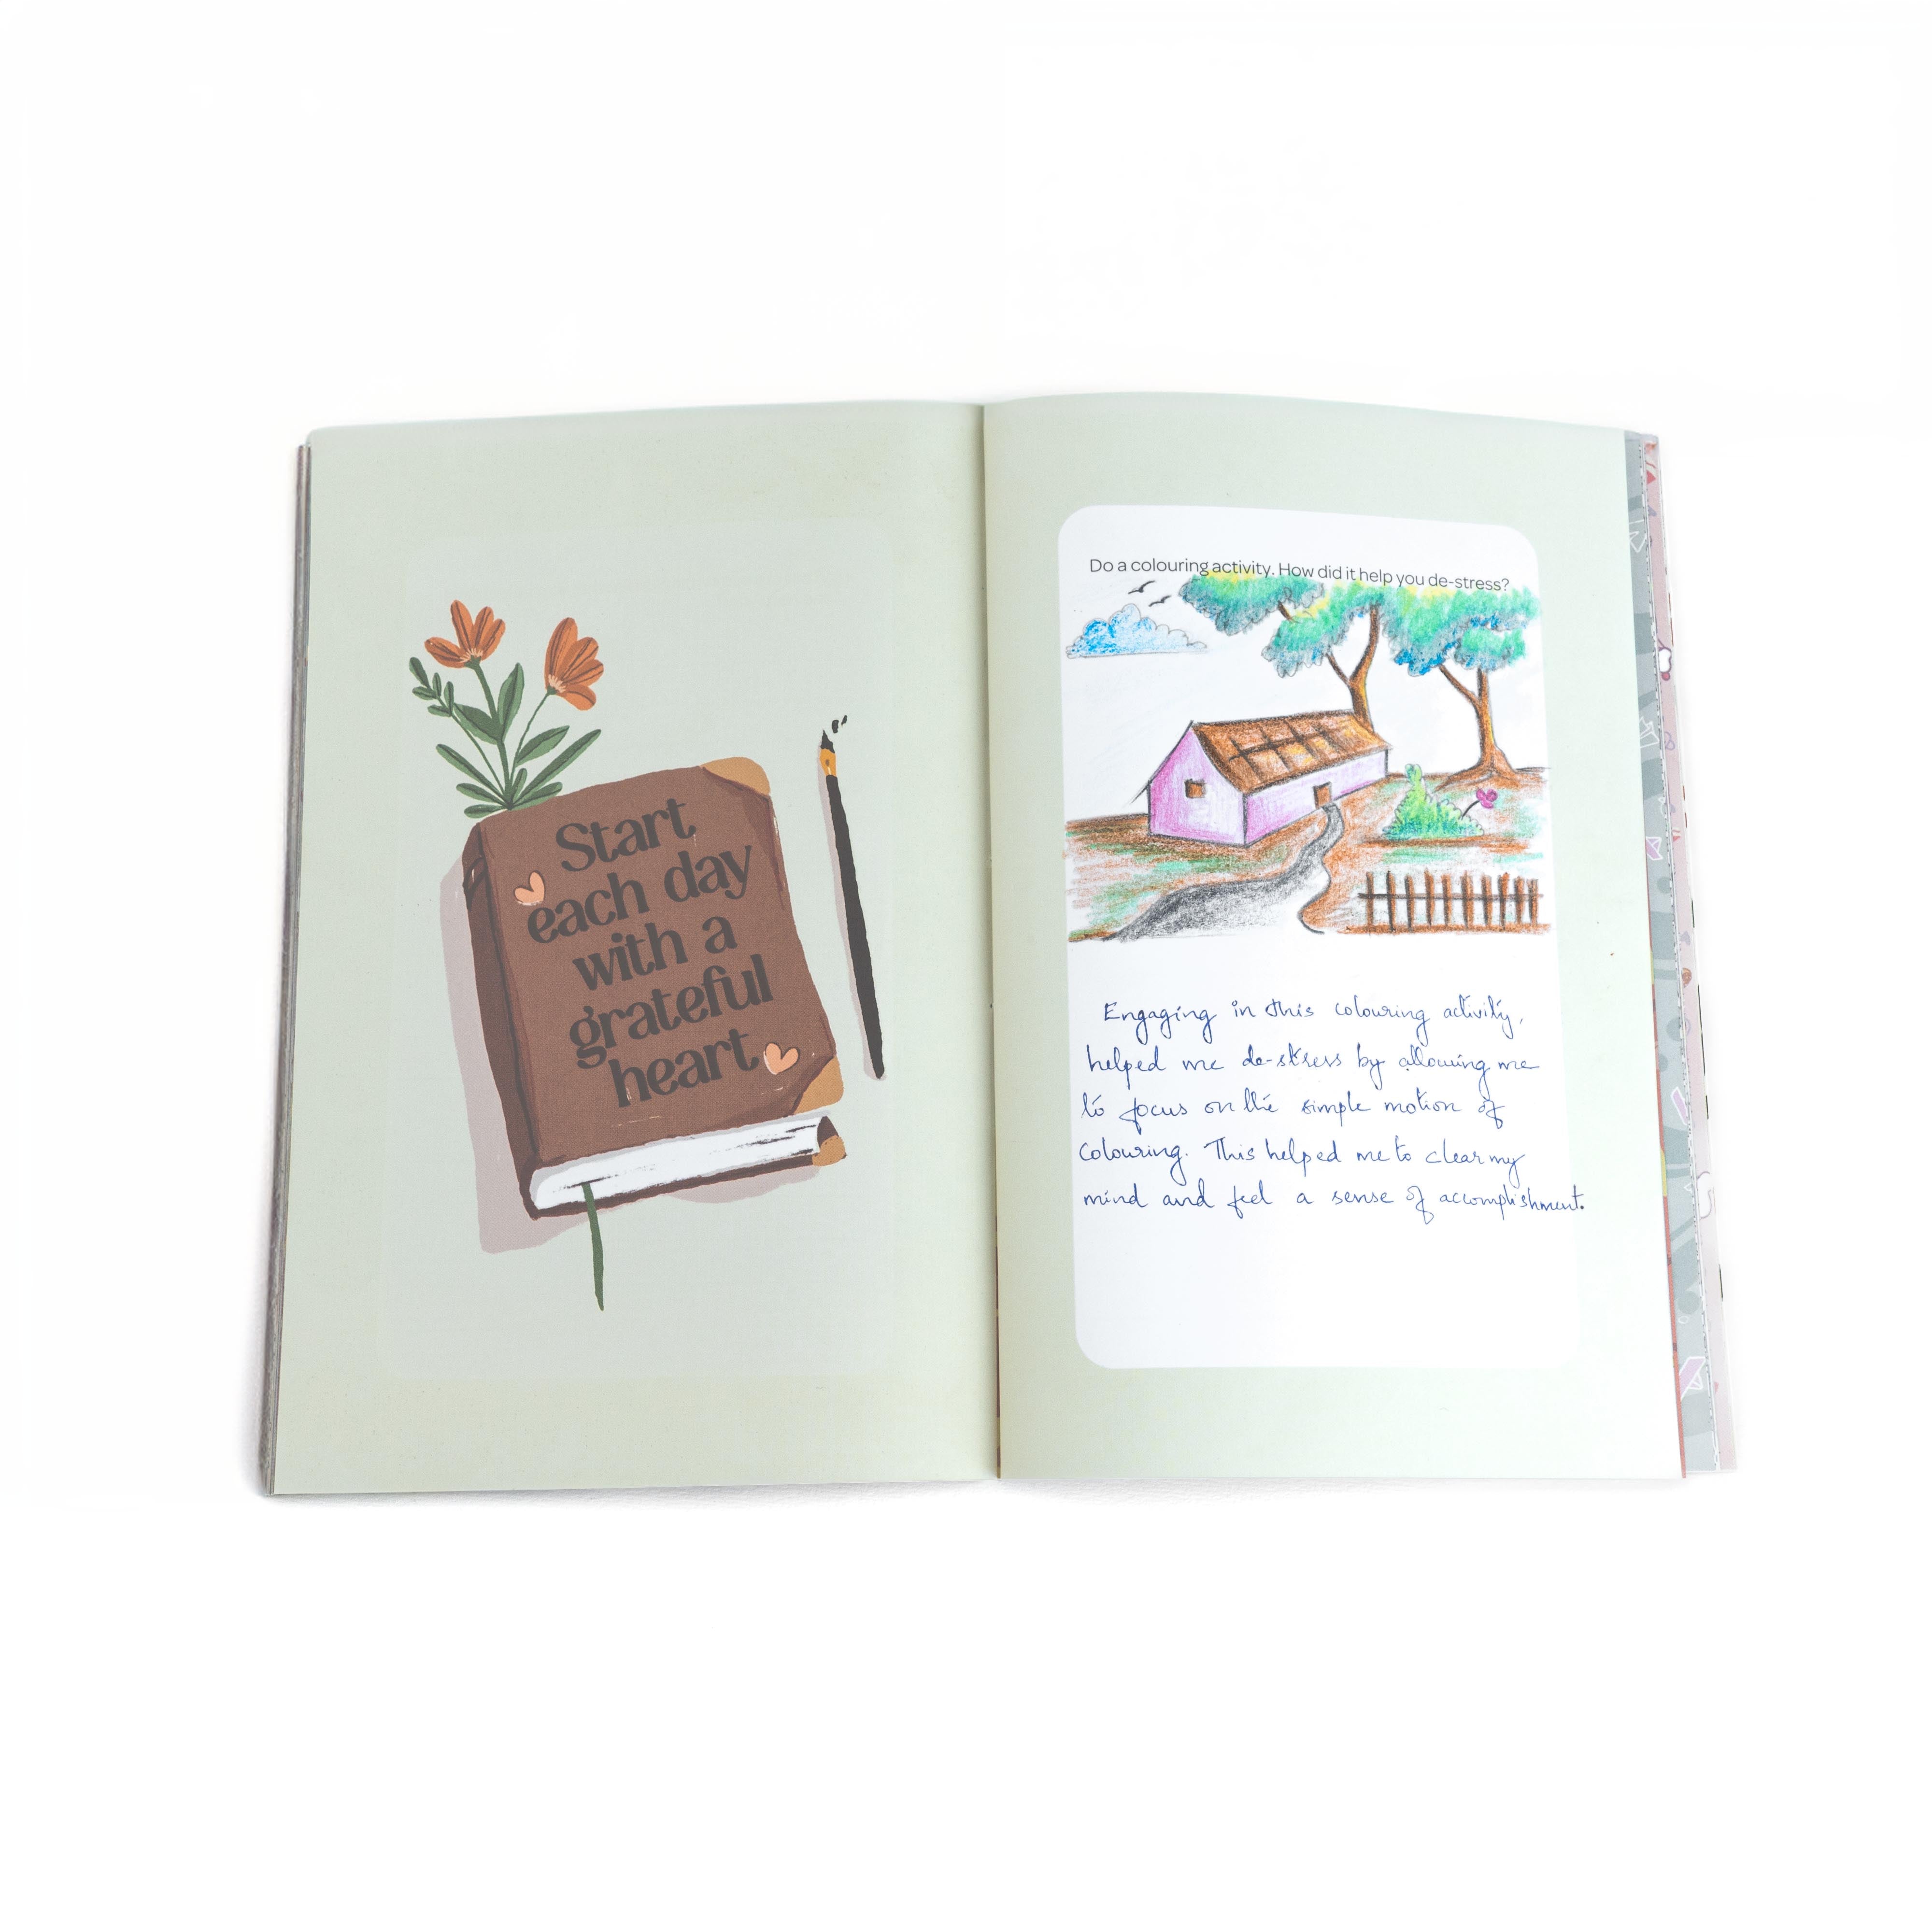 Start
each day
with a
grateful
heart
Do a colouring activity. How did it help you de-stress?
Engaging in this colouring activity,
helped me de-stress by allowing me
to focus on the simple motion of
colouring. This helped me to clear my
mind and feel a sense of accomplishment.